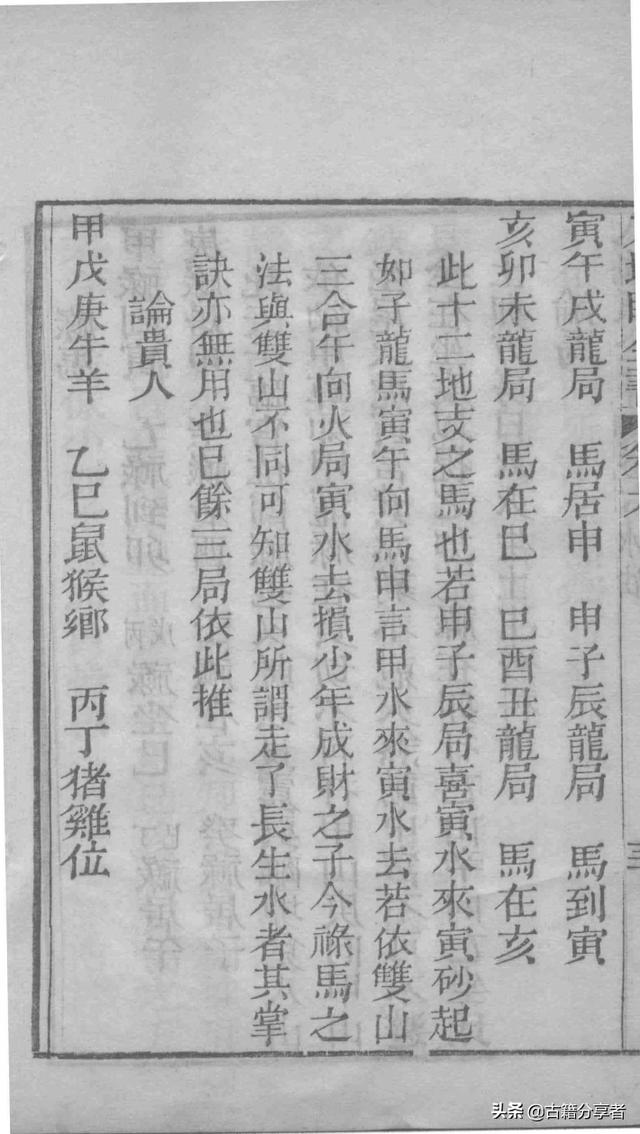 寅午戌龍局　馬居申　申子辰龍局　馬到寅
亥卯未龍局　馬在巳　巳酉丑龍局　馬在亥
此十二地支之馬也若申子辰局喜寅水來寅砂起
如子龍馬寅午向馬申言甲水來寅水去若依雙山
三合午向火局寅水去損少年成財之子今祿馬之
法與雙山不同可知雙山所謂走了長生水者其掌
訣亦無用也已餘三局依此推
論貴人
甲戊庚牛羊　乙巳鼠猴鄉　丙丁猪雞位
头条 @古籍分享者